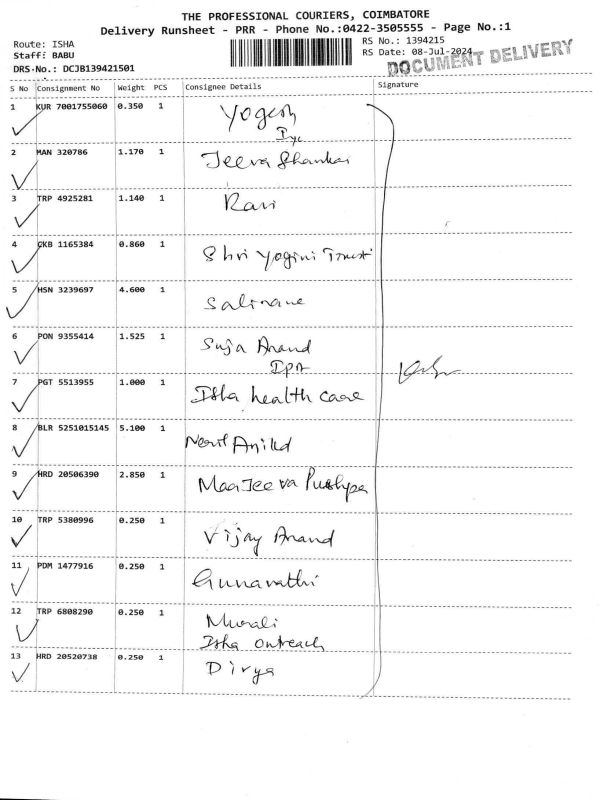 THE PROFESSIONAL COURIERS, COIMBATORE
Delivery Runsheet - PRR - Phone No.:0422-3505555 - Page No.:1
Route: ISHA
Staff: BABU
DRS No.: DCJB139421501
RS No.: 1394215
RS Date: 08-Jul-2024
DOCUMENT DELIVERY
S No Consignment No Weight PCS Consignee Details Signature
1 KUR 7001755060 0.350 1 Yogesh
2 MAN 320786 1.170 1 Jeeva Shankar
3 TRP 4925281 1.140 1 Ravi
4 CKB 1165384 0.860 1 Shri Yogini Trust
5 HSN 3239697 4.600 1
6 PON 9355414 1.525 1 Suja Anand
IPA
7 PGT 5513955 1.000 1 Isha health care
8 BLR 5251015145 5.100 1
9 HRD 20506390 2.850 1 Maa Jeeva Pushpa
10 TRP 5380996 0.250 1 Vijay Anand
11 PDM 1477916 0.250 1 Gunavathi
12 TRP 6808290 0.250 1 Murali
Isha outreach
13 HRD 20520738 0.250 1 Divya